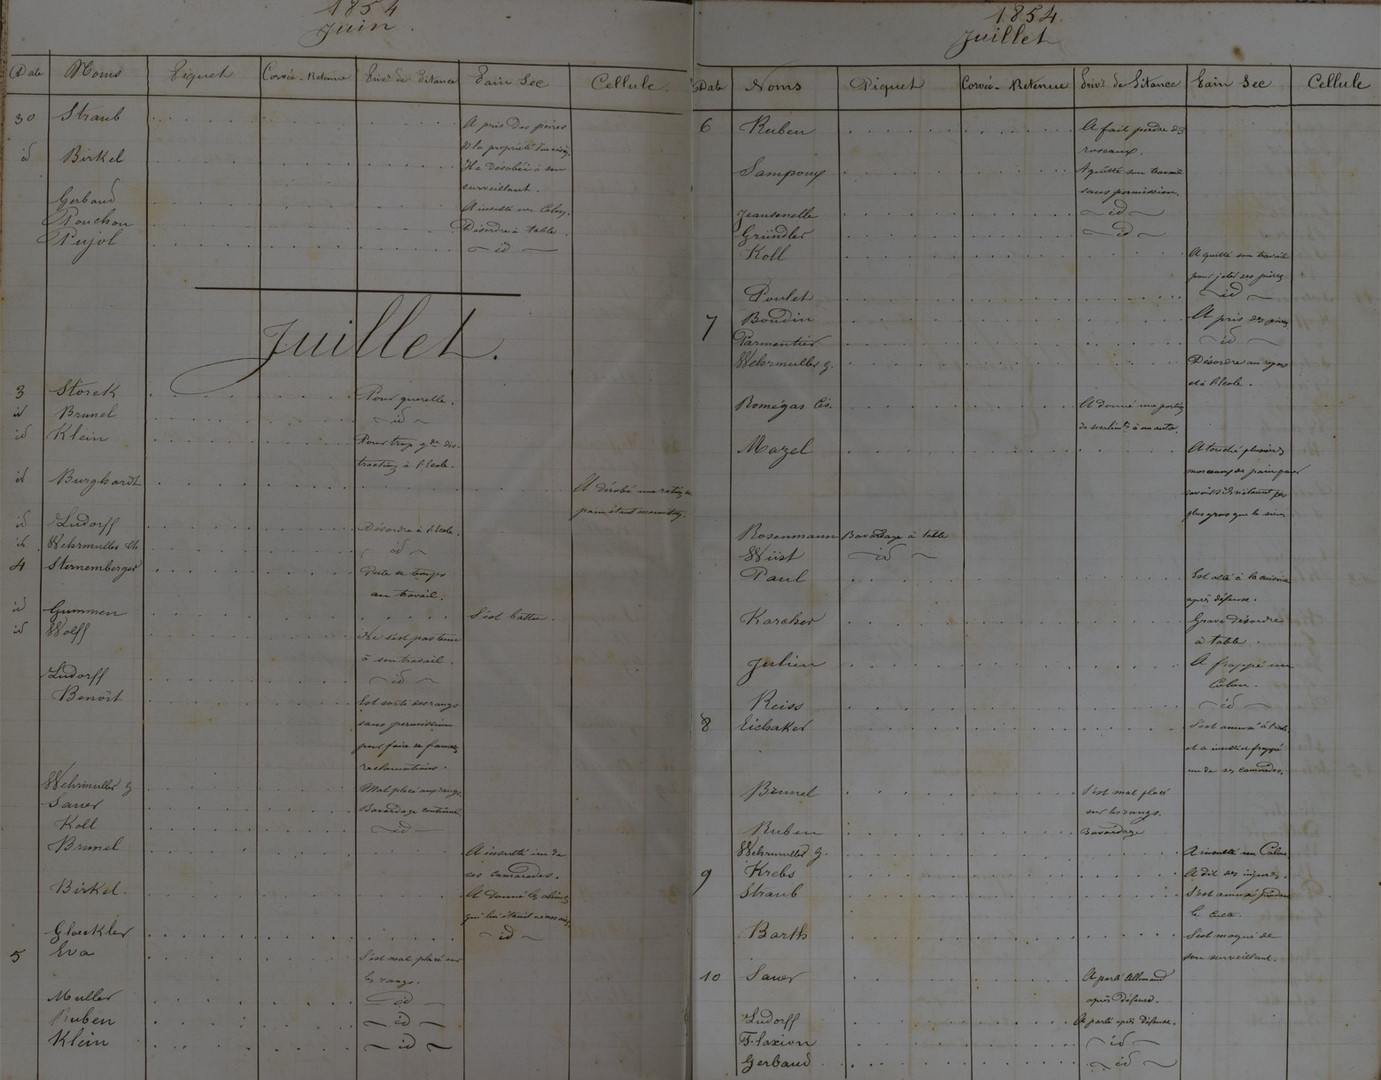 1854
Juin.
Date Noms Piquet Corvée-Retenue Privon de Pitance Pain Sec Cellule
30 Straub A pris des poires
à la propriété
id Birkel Il a désobéi à son
surveillant.
Gerbaud A insulté un Colon.
Pouchon Désordre à table.
Pujol id
Juillet.
3 Storck Pour querelle.
id Brunel id
id Klein Pour trop gde dis-
traction à l'école.
id Burghardt A dérobé une ration de
pain étant
id Ludorff Désordre à l'école.
id Wehrmuller Ch id
4 Sternemberger Perte de temps
au travail.
id Gummen S'est battu.
id Wolff Ne s'est pas tenu
à son travail.
Ludorff id
Benoit Est sorti des rangs
sans permission
pour faire de fausses
réclamations.
Wehrmuller G Mal placé aux rangs.
Sauer Bavardage continuel
Koll id
Brunel A insulté un de
ses camarades.
Birkel A donné les aliments
qui lui étaient nécessaires
Gloeckler id
5 Eva S'est mal placé sur
les rangs.
Muller id
Ruben id
Klein id
1854
Juillet
Date Noms Piquet Corvée-Retenue Privon de Pitance Pain Sec Cellule
6 Ruben A fait perdre des
roseaux.
Sampoux A quitté son travail
sans permission.
Jeansonelle id
Gründler id
Koll A quitté son travail
pour jeter des pierres
Poulet id
7 Boudin A pris des poires
Parmentier id
Wehrmuller G. Désordre au repas
et à l'école.
Romégas Cés. A donné une portion
à un autre.
Mazel A touché plusieurs
morceaux de pain pour
savoir s'ils n'étaient pas
plus gros que le sien
Rosenmann Bavardage à table
Wüst id
Paul Est allé à la cuisine
après défense.
Karcher Grave désordre
à table.
Julien A frappé un
Colon.
Reiss id
8 Eichaker S'est amusé à l'école
et a insulté et frappé
un de ses camarades.
Brunel S'est mal placé
sur les rangs.
Ruben Bavardage
Wehrmuller G. A insulté un Colon.
9 Krebs A dit des injures.
Straub S'est amusé pendant
le
Barth S'est moqué de
son surveillant.
10 Sauer A parlé Allemand
après défense.
Ludorff A parlé après défense.
Flaxion id
Gerbaud id